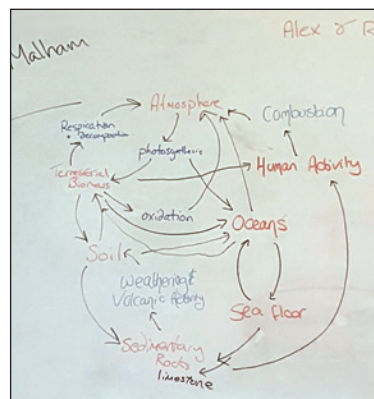 Alex &
Malham
Atmosphere
Combustion
Respiration
+ Decomposition
photosynthesis
Human Activity
Terrestrial
Biomass
oxidation
Oceans
Soil
Weathering &
Volcanic Activity
Sea floor
Sedimentary
Rocks
limestone